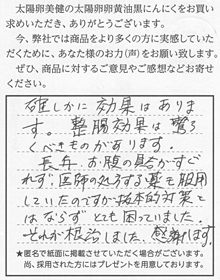 太陽卵美健の太陽卵卵黄油黒にんにくをお買い
求めいただき、ありがとうございます。
今、弊社では商品をより多くの方に実感していた
だくために、あなた様のお力(声)をお願い致します。
ぜひ、商品に対するご意見やご感想などお寄せ
ください。
確しかに効果はありま
す。整腸効果は驚ろ
くべきものがあります。
長年、お腹の具合がすぐ
れず、医師の処方する薬も服用
していたのですが抜本的対策と
はならず とても困っていました。
それが根治しました。感謝します。
★匿名で紙面に掲載させていただく場合がございます。
尚、採用された方にはプレゼントを用意しております。